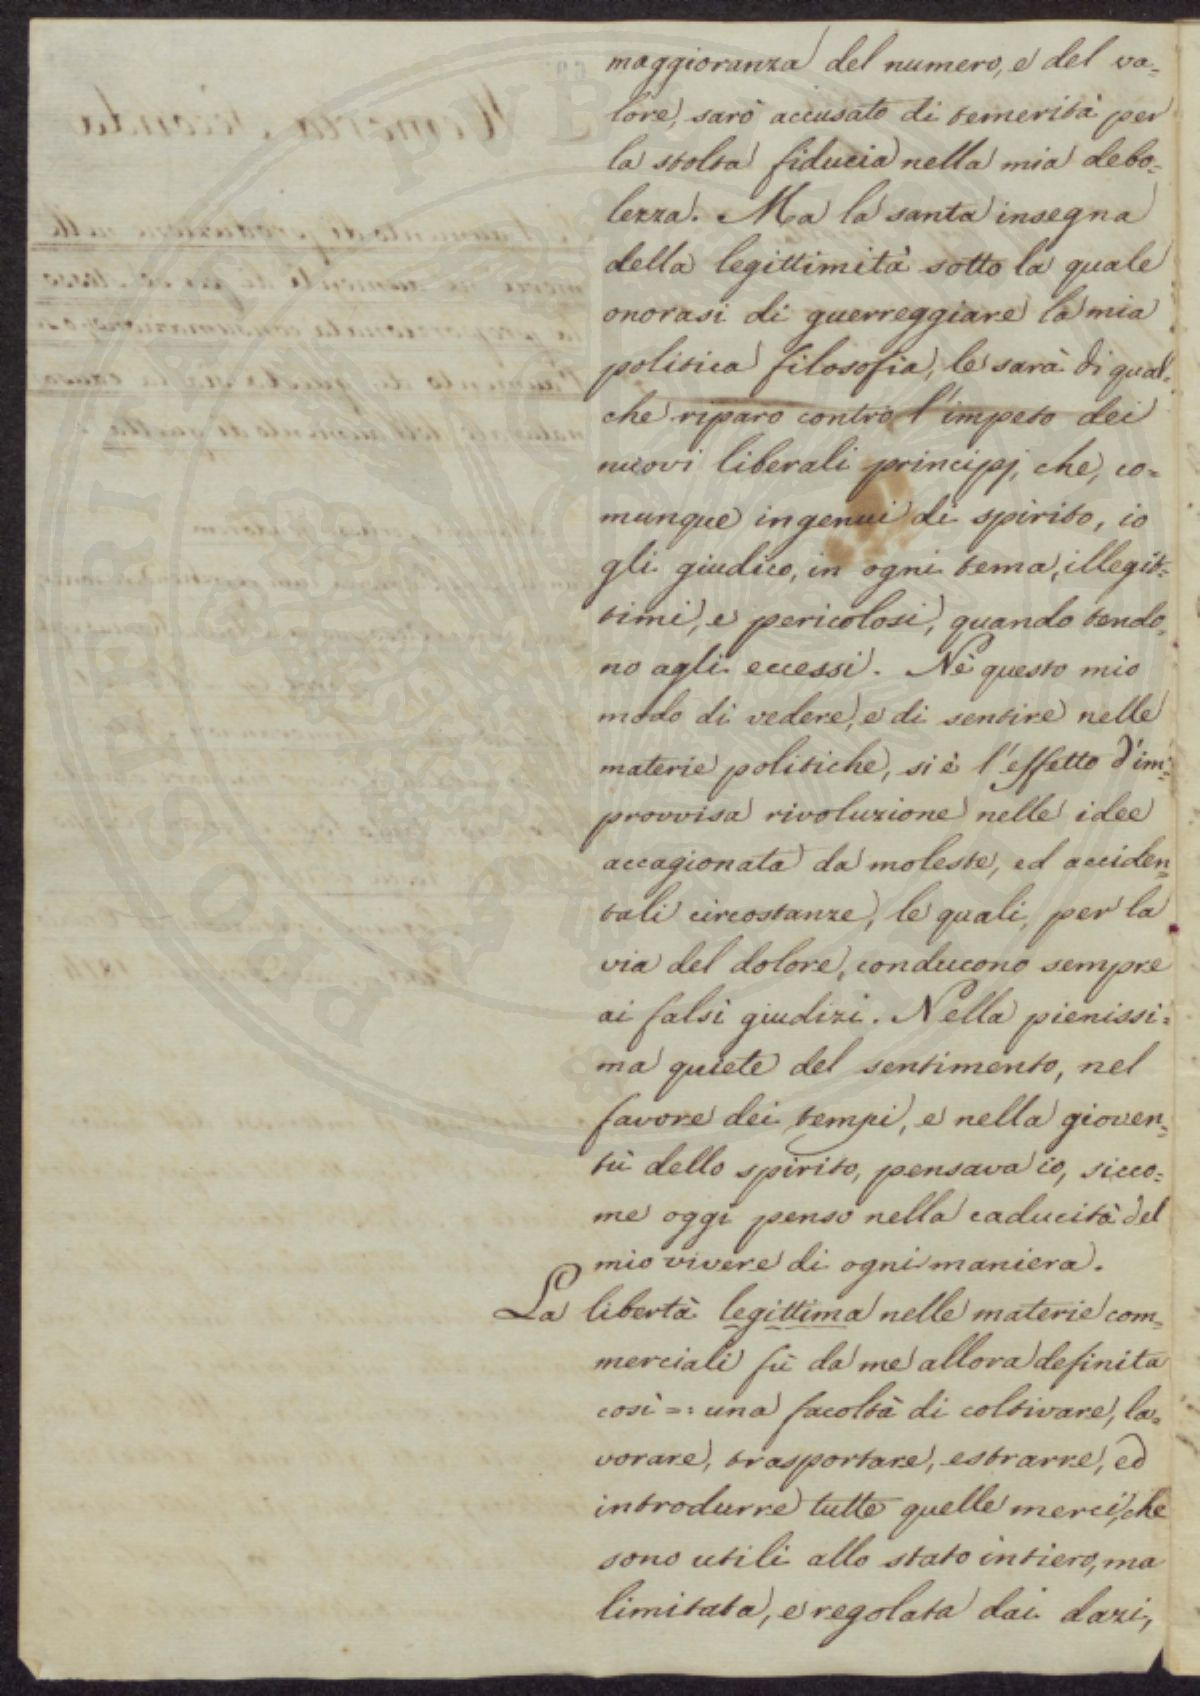 maggioranza del numero, e del va=
lore, sarò accusato di temerità per
la stolta fiducia nella mia debo=
lezza. Ma la santa insegna
della legittimità sotto la quale
onorasi di guerreggiare la mia
politica filosofia, le sarà di qual=
che riparo contro l'impeto dei
nuovi liberali principj, che, co=
munque ingenui di spirito, io
gli giudico, in ogni tema, illegit=
timi, e pericolosi, quando tendo=
no agli eccessi. Nè questo mio
modo di vedere, e di sentire nelle
materie politiche, si è l'effetto d'im=
provvisa rivoluzione nelle idee
accagionata da moleste, ed acciden=
tali circostanze, le quali, per la
via del dolore, conducono sempre
ai falsi giudizi. Nella pienissi=
ma quiete del sentimento, nel
favore dei tempi, e nella gioven=
tù dello spirito, pensava io, sicco=
me oggi penso nella caducità del
mio vivere di ogni maniera.
La libertà legittima nelle materie com=
merciali fù da me allora definita
così =: una facoltà di coltivare, la=
vorare, trasportare, estrarre, ed
introdurre tutte quelle merci, che
sono utili allo stato intiero, ma
limitata, e regolata dai dazi,